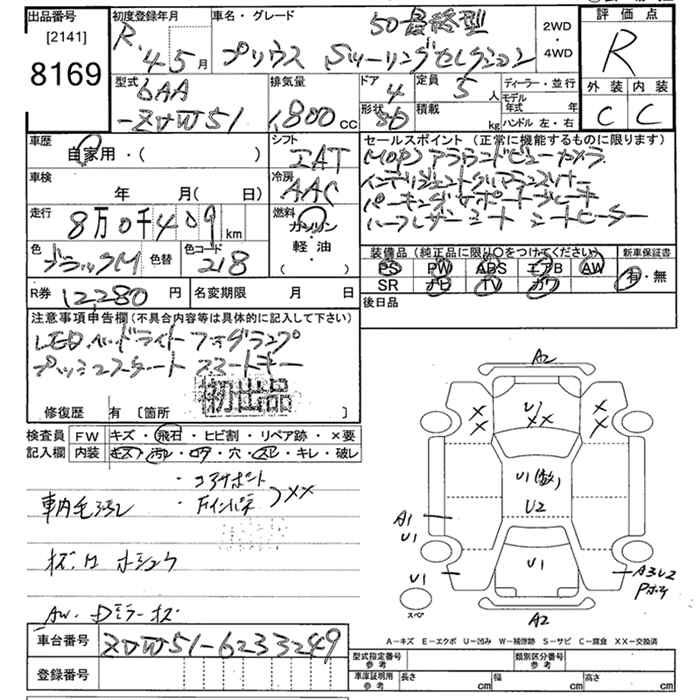 出品番号
[2141]
8169
初度登録年月
R.4-5月
車名・グレード
50最終型
プリウス Sツーリングセレクション
2WD
・
4WD
評価点
R
外装 内装
C C
型式
6AA
-ZVW51
排気量
1,800cc
ドア
4
形状
5D
定員
5人
積載
kg
ディーラー・並行
モデル
年式 年
ハンドル 左・右
車歴
自家用・( )
シフト
IAT
車検
年 月( 日)
冷房
AAC
走行
8万0千409km
燃料
ガソリン
軽油
・( )
色
ブラックM
色替
色コード
218
R券 12,280円
名変期限 月 日
セールスポイント (正常に機能するものに限ります)
(MOP) アラウンドビューカメラ
インテリジェントクリアランスソナー
パーキングサポートブレーキ
ハーフレザーシート シートヒーター
装備品 (純正品に限り○をつけてください)
PS PW ABS エアB AW
SR ナビ TV カワ
新車保証書
有・無
後日品
注意事項申告欄(不具合内容等は具体的に記入して下さい)
LEDヘッドライト フォグランプ
プッシュスタート スマートキー
初出品
修復歴 有 [箇所 ]
検査員
記入欄
FW キズ・飛石・ヒビ割・リペア跡・×要
内装 キズ・汚レ・コゲ・穴・スレ・キレ・破レ
・コアサポート
・Fインパネ
XX
車内毛汚レ
キズ、凹 ホシュウ
AW・Dミラーキズ
車台番号 ZVW51-6233249
登録番号
A2
XX
U1
XX
XX
U1(散)
U2
A1
U1
U1
U1
スペア
A3U2
Pホチ
A2
A-キズ E-エクボ U-凹み W-補修跡 S-サビ C-腐食 XX-交換済
型式指定番号
参考
類別区分番号
参考
車庫証明用
参考
長さ cm 幅 cm 高さ cm